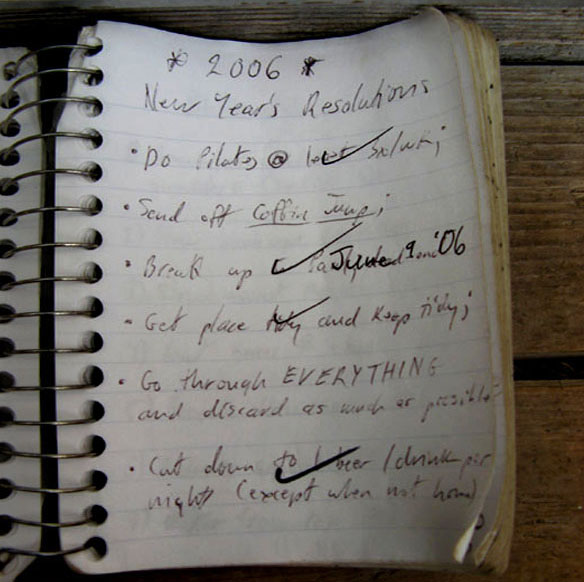 * 2006 *
New Year's Resolutions
• Do Pilates @ least
• Send off Coffin Jump;
• Break up June 9 '06
• Get place tidy and keep tidy;
• Go through EVERYTHING
and discard as much as possible
• Cut down to 1 beer/drink per
night (except when not home)